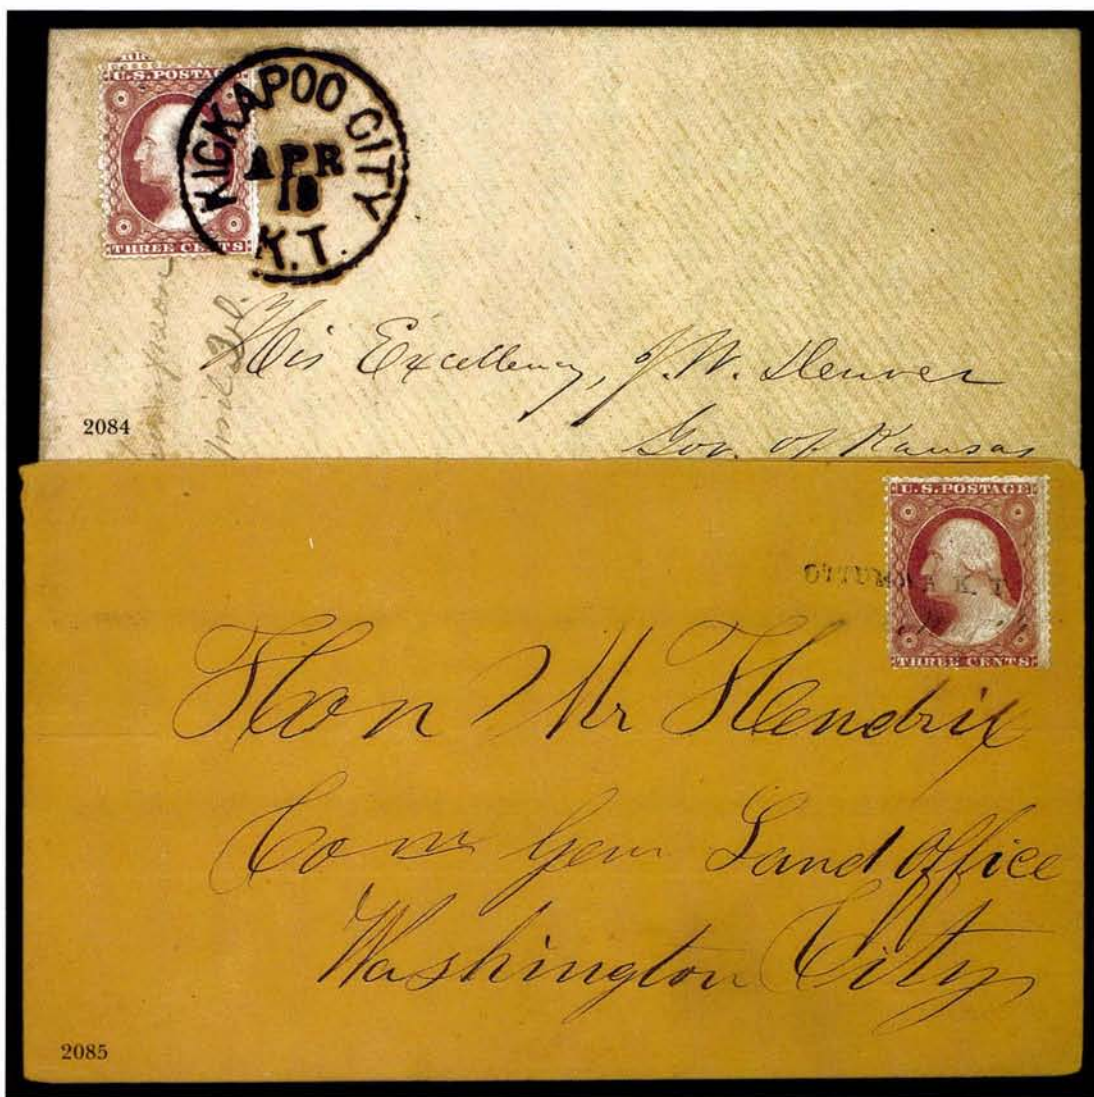 U.S. POSTAGE
THREE CENTS
KICKAPOO CITY
APR
18
K.T.
His Excellency, J. W. Denver
Gov. of Kansas
2084
U.S. POSTAGE
THREE CENTS
OTTUMWA K. T.
Hon Mr Hendrix
Com Gen Land Office
Washington City
2085